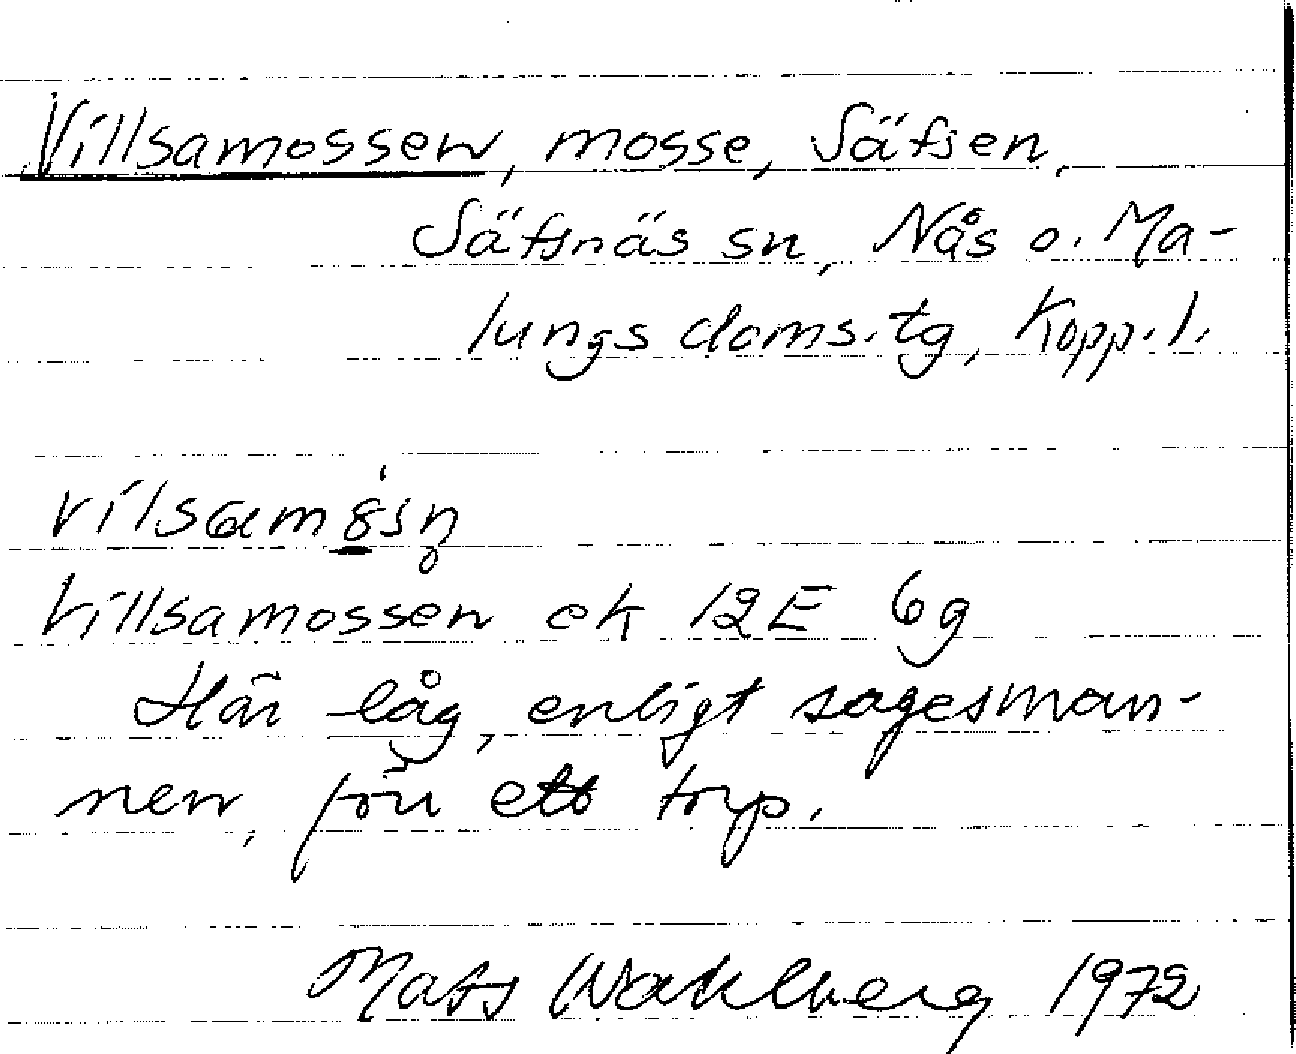 Villsamossen, mosse, Säfsen,
Säfsnäs sn, Nås o. Ma-
lungs doms.tg, Kopp.l.
Villsamossen ek 12E 6g
Här låg, enligt sagesman-
nen, förr ett torp.
Mats Wahlberg 1972